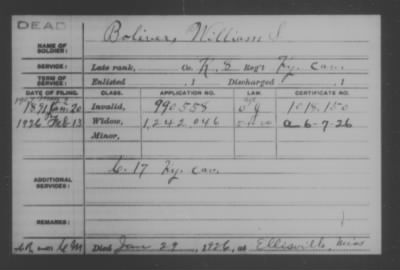 DEAD
Boliver, William S
NAME OF SOLDIER:
SERVICE: Late rank, Co. K. 8 Reg't Ky. Cav.
TERM OF SERVICE: Enlisted , 1 Discharged , 1
DATE OF FILING. CLASS. APPLICATION NO. LAW. CERTIFICATE NO.
1891 Jan. 20 Invalid, 990558 1018,150
1926 Feb 13 Widow, 1,242,046 a-6-7-26
Minor,
ADDITIONAL SERVICES: C. 17 Ky. Cav.
REMARKS:
Died Jan 29, 1926, at Ellisville, Miss